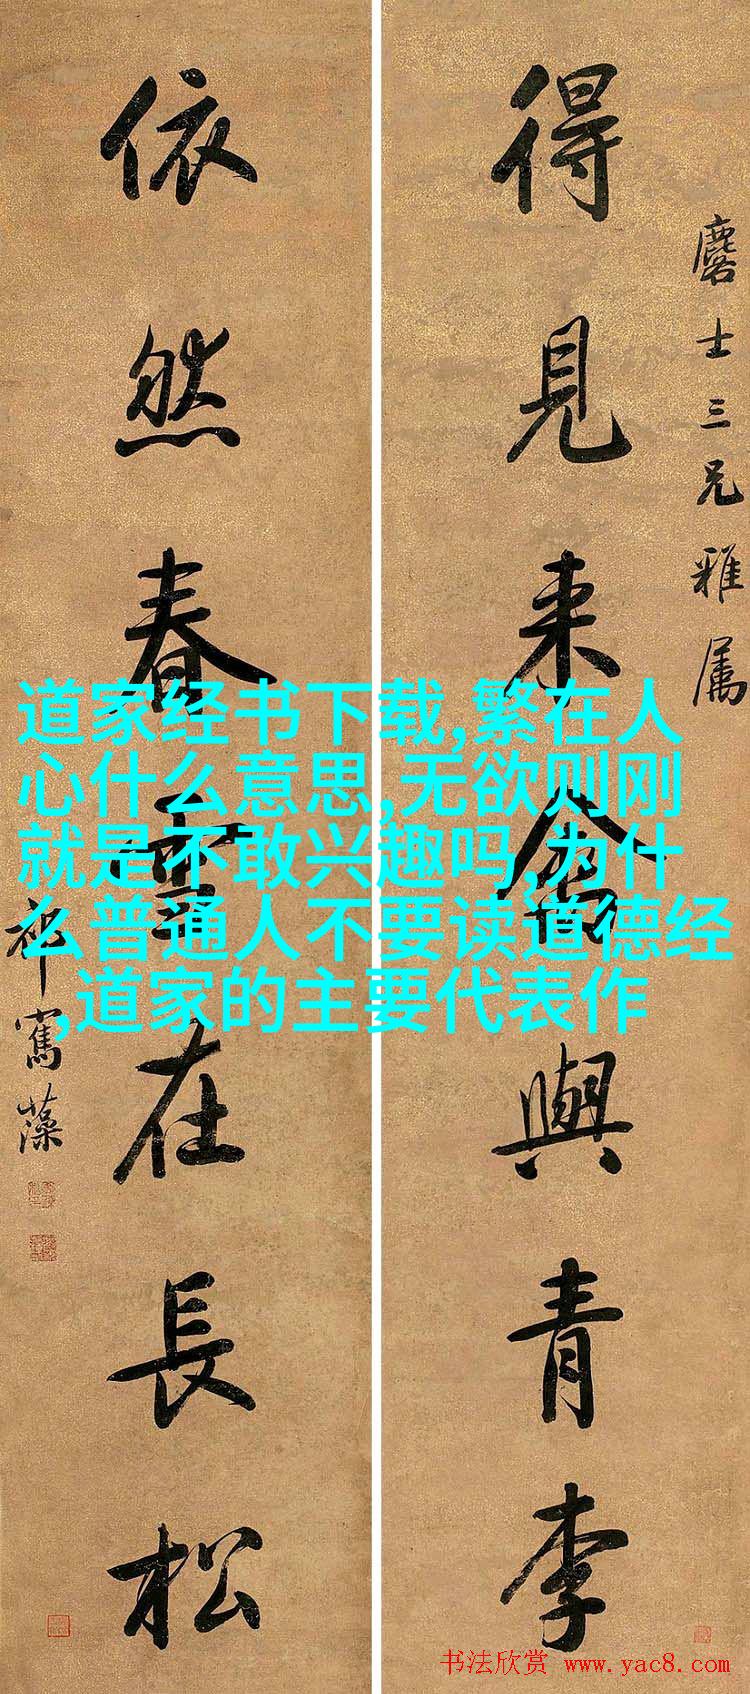 得見来禽與青李
麐士三兄雅屬
依然春雪在長松
祁寯藻
道家经书下载,繁在人
心什么意思,无欲则刚
就是不敢兴趣吗,为什
么普通人不要读道德经
,道家的主要代表作
书法欣赏 www.yac8.com